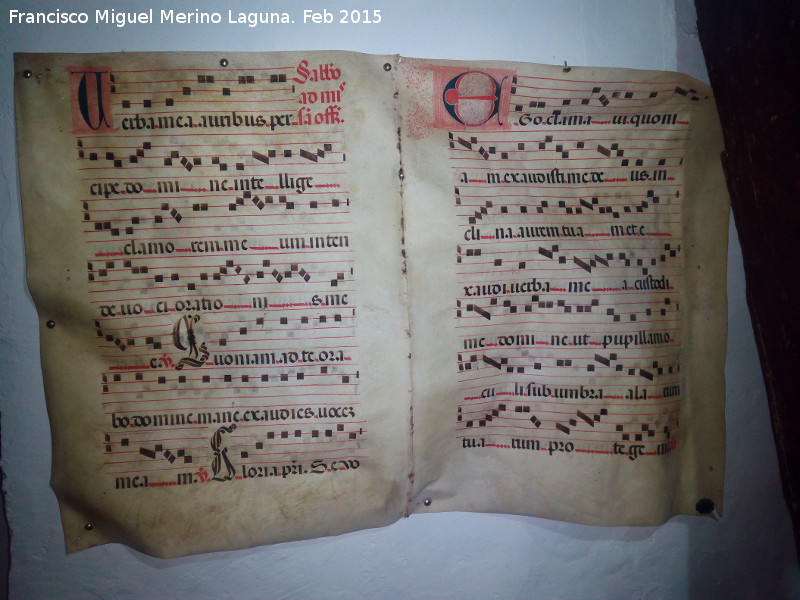 Francisco Miguel Merino Laguna. Feb 2015
Sabbo
ad mis
sã offm.
Uerba.mea.auribus.per
cipe.do...mi....ne.inte...llige....
clamo..rem.me...um.inten
de.uo...ci.oratio...ni....s.me
e.V. Quoniam.ad.te.ora
bo.domine.mane.exaudies.uocez
mea....m.V. Gloria.pri. Se.uo
EGo.clama...ui.quoni
a...m.exaudisti.me.de...us.in.
cli..na.aurem.tua...m.et.e....
xaudi.uerba...me....a.custodi.
me..domi...ne.ut..pupillam.o.
cu...li.sub.umbra...ala..rum
tua...rum..pro....te.ge..